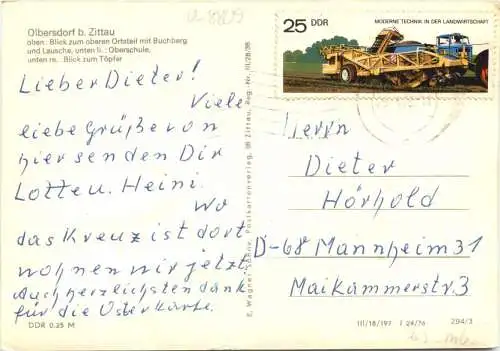 Olbersdorf b. Zittau
oben: Blick zum oberen Ortsteil mit Buchberg
und Lausche, unten li.: Oberschule,
unten re. Blick zum Töpfer
25 DDR
MODERNE TECHNIK IN DER LANDWIRTSCHAFT
Lieber Dieter!
Viele
liebe Grüße von
hier senden Dir
Lotte u. Heini.
Wo
das Kreuz ist dort
wohnen wir jetzt.
Auch herzlichsten dank
für die Osterkarte.
E. Wagner Söhne, Postkartenverlag, 98 Zittau, Reg. Nr. III/28/36
Herrn
Dieter
Hörhold
D-68 Mannheim 31
Maikammerstr. 3
DDR 0.25 M
III/18/197 F 24/76
294/3